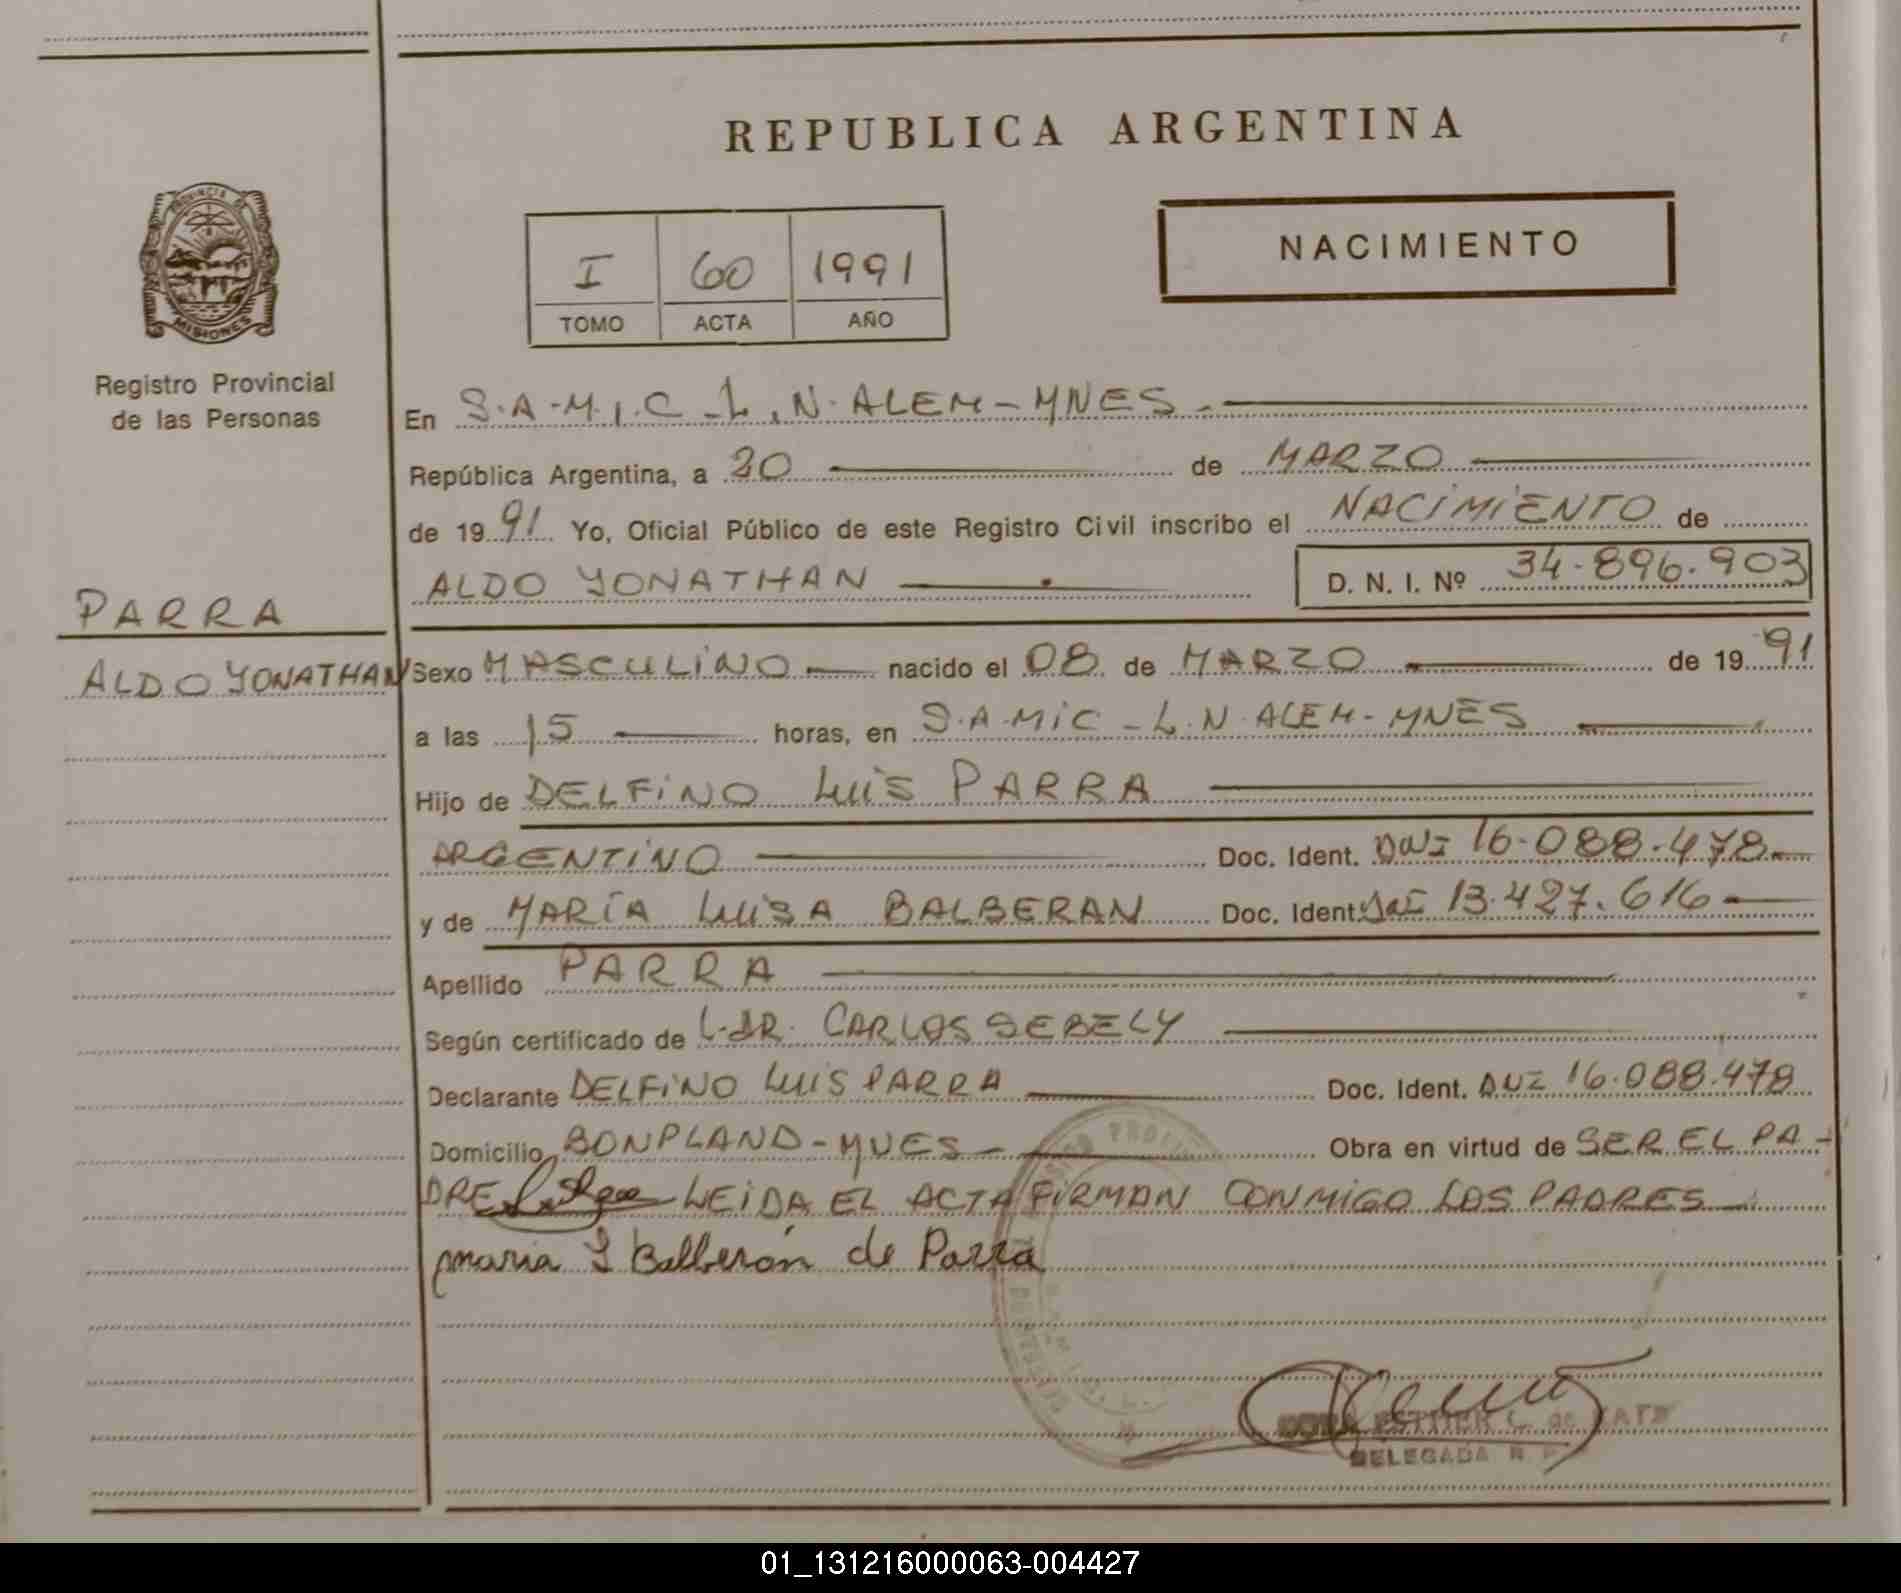 REPUBLICA ARGENTINA
PROVINCIA DE
MISIONES
Registro Provincial
de las Personas
I 60 1991
TOMO ACTA AÑO
NACIMIENTO
En S.A.M.I.C - L.N. ALEM - MNES.
República Argentina, a 20 de MARZO
de 1991 Yo, Oficial Público de este Registro Civil inscribo el NACIMIENTO de
ALDO YONATHAN D. N. I. Nº 34.896.903
PARRA
ALDO YONATHAN
Sexo MASCULINO nacido el 08 de MARZO de 1991
a las 15 horas, en S.A.MIC - L.N. ALEM - MNES
Hijo de DELFINO LUIS PARRA
ARGENTINO Doc. Ident. DNI 16.088.478
y de MARÍA LUISA BALBERAN Doc. Ident. 13.427.616
Apellido PARRA
Según certificado de DR. CARLOS SEBELY
Declarante DELFINO LUIS PARRA Doc. Ident. DNI 16.088.478
Domicilio BONPLAND - MNES Obra en virtud de SER EL PA-
DRE LEIDA EL ACTA FIRMAN CONMIGO LOS PADRES
maria L Balberán de Parra
ESTHER
DELEGADA R. P.
01_131216000063-004427